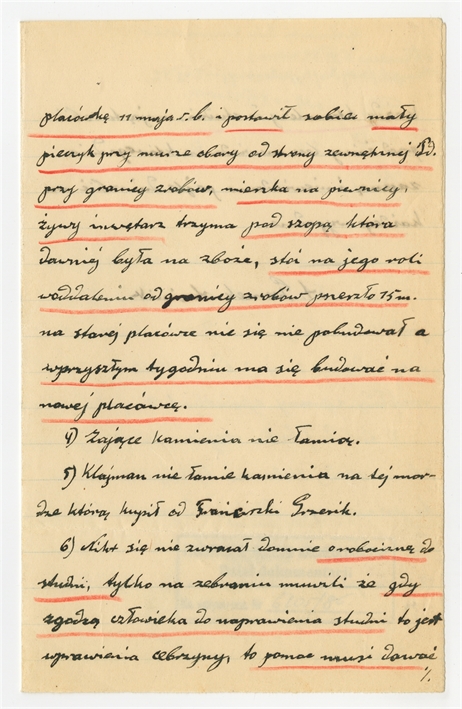 placówkę 11 maja s.b. i postawił sobie mały
piecyk przy murze obory od strony zewnętrznej Pd.
przy granicy zrobów, mieszka na piewnicy,
żywy inwętarz trzyma pod szopą która
dawniej była na zboże, stoi na jego roli
woddaleniu od granicy zrobów przeszło 15 m.
na starej placówce nic się nie pobudował a
wprzyszłym tygodniu ma się budować na
nowej placówcę.
4) Zające kamienia nie łamią.
5) Klajman nie łamie kamienia na tej mor-
dze którą kupił od Franciszki Grzesik.
6) Nikt się nie zwracał domnie orobociznę do
studni, tylko na zebraniu muwili że gdy
zgodzą człowieka do naprawienia studni to jest
wprawienia cebrzyny, to pomoc musi dawać
./.